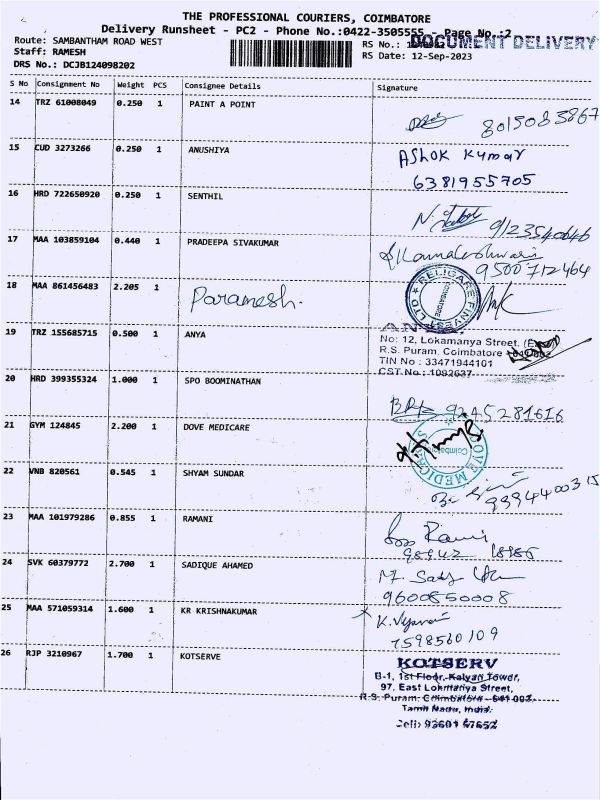 THE PROFESSIONAL COURIERS, COIMBATORE
Delivery Runsheet - PC2 - Phone No.:0422-3505555 - Page No.:2
Route: SAMBANTHAM ROAD WEST
RS No.:
DOCUMENT DELIVERY
Staff: RAMESH
RS Date: 12-Sep-2023
DRS No.: DCJB124098202
S No Consignment No Weight PCS Consignee Details Signature
14 TRZ 61008049 0.250 1 PAINT A POINT
15 CUD 3273266 0.250 1 ANUSHIYA
Ashok Kumar
6381955705
16 HRD 722650920 0.250 1 SENTHIL
17 MAA 103859104 0.440 1 PRADEEPA SIVAKUMAR
9500712464
18 MAA 861456483 2.205 1 Paramesh.
RELIGARE FINVEST LTD
COIMBATORE
19 TRZ 155685715 0.500 1 ANYA
No: 12, Lokamanya Street,
R.S. Puram, Coimbatore
TIN No : 33471944101
CST No : 1092637
20 HRD 399355324 1.000 1 SPO BOOMINATHAN
9245281616
21 GYM 124845 2.200 1 DOVE MEDICARE
DOVE MEDICAL
Coimbatore
22 VNB 820561 0.545 1 SHYAM SUNDAR
9994400315
23 MAA 101979286 0.855 1 RAMANI
24 SVK 60379772 2.700 1 SADIQUE AHAMED
9600850008
25 MAA 571059314 1.600 1 KR KRISHNAKUMAR
7598560109
26 RJP 3210967 1.700 1 KOTSERVE
KOTSERV
B-1, 1st Floor, Kalyan Tower,
97, East Lokmanya Street,
R.S. Puram, Coimbatore - 641 002.
Tamil Nadu, India.
Cell: 93601 67652